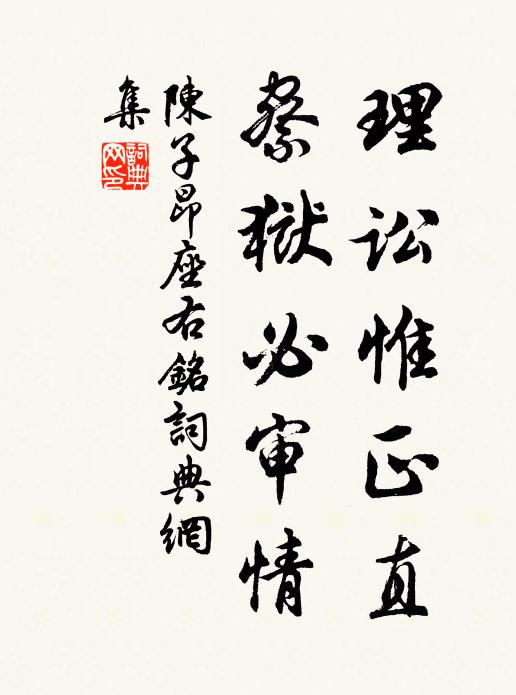 理讼惟正直
察獄必审情
陳子昂座右銘詞典網
集
詞典网印